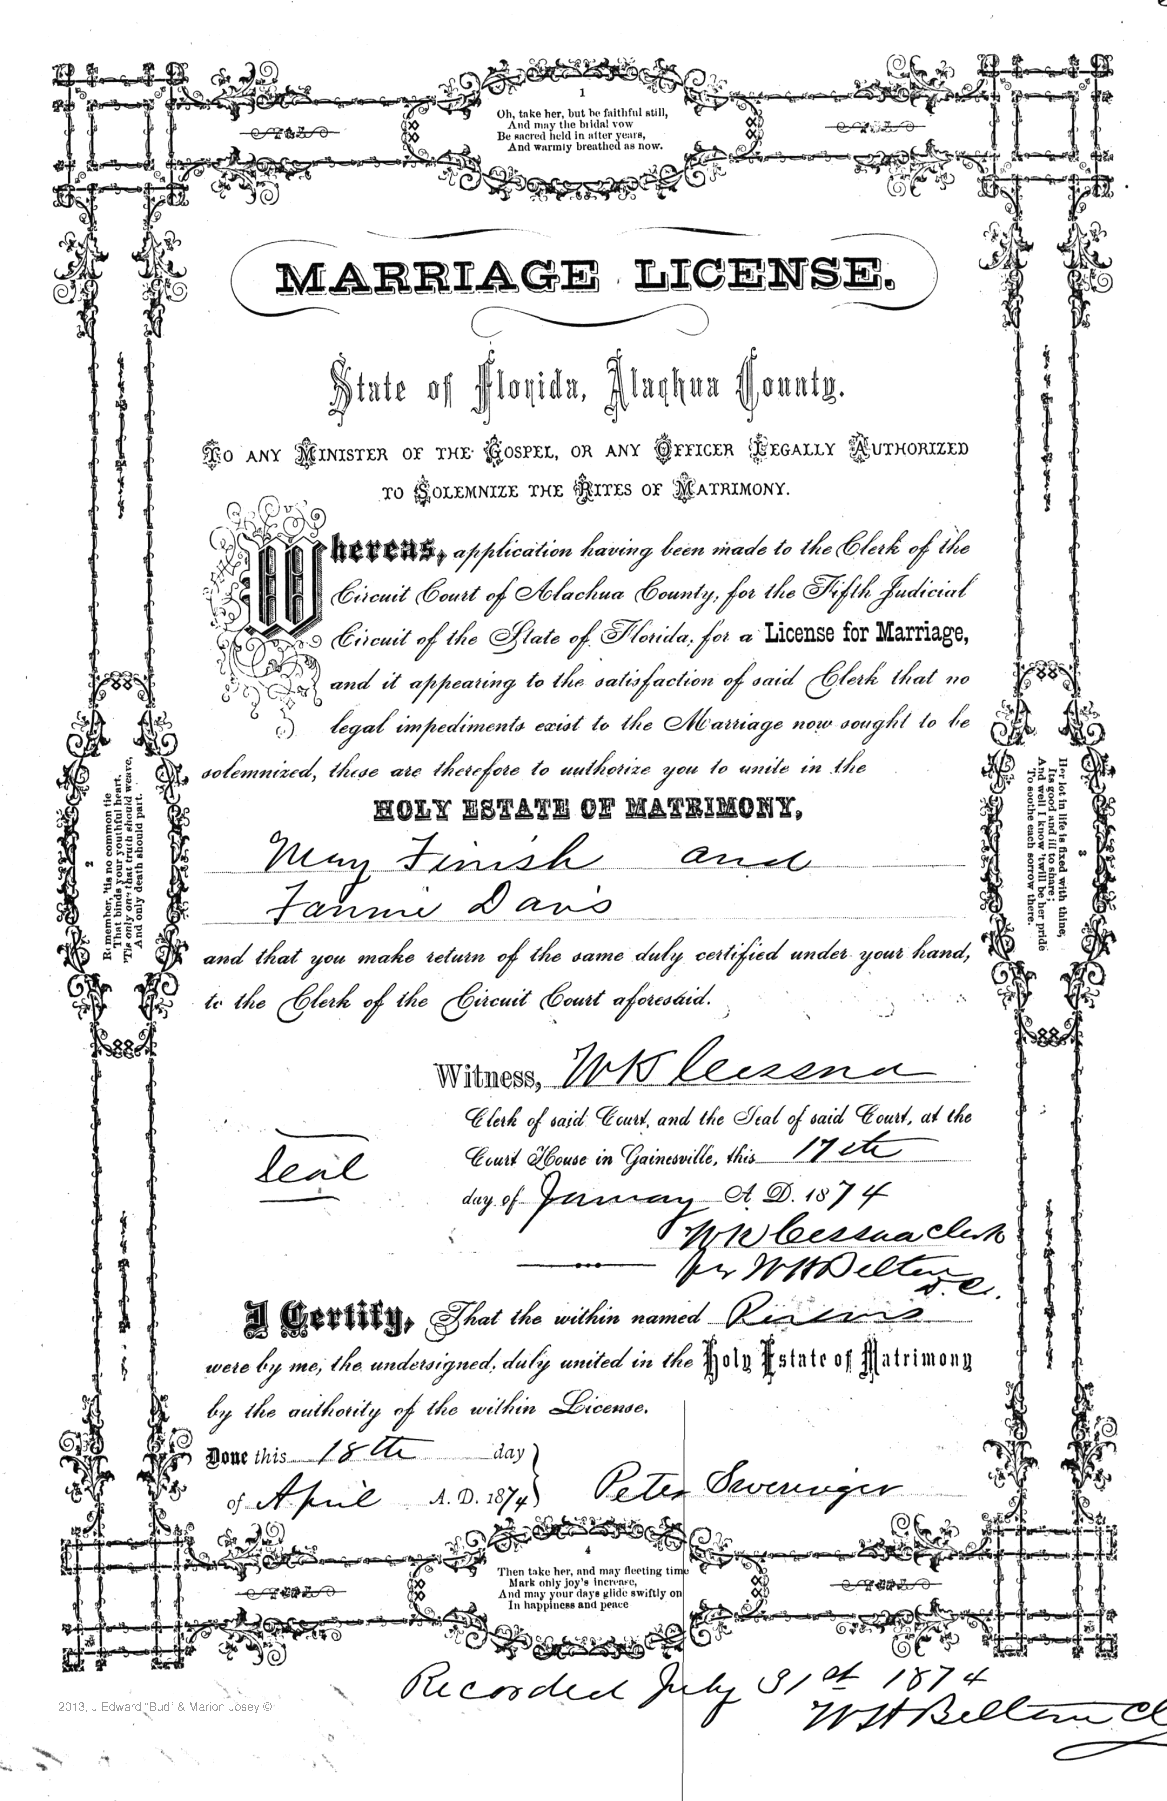 1
Oh, take her, but be faithful still,
And may the bridal vow
Be sacred held in after years,
And warmly breathed as now.
MARRIAGE LICENSE.
State of Florida, Alachua County.
TO ANY MINISTER OF THE GOSPEL, OR ANY OFFICER LEGALLY AUTHORIZED
TO SOLEMNIZE THE RITES OF MATRIMONY.
Whereas, application having been made to the Clerk of the
Circuit Court of Alachua County, for the Fifth Judicial
Circuit of the State of Florida, for a License for Marriage,
and it appearing to the satisfaction of said Clerk that no
legal impediments exist to the Marriage now sought to be
solemnized, these are therefore to authorize you to unite in the
HOLY ESTATE OF MATRIMONY,
May Finish and
Fannie Davis
and that you make return of the same duly certified under your hand,
to the Clerk of the Circuit Court aforesaid.
2
Remember, 'tis no common tie
That binds your youthful heart.
'Tis only one that truth should weave,
And only death should part.
3
Her lot in life is fixed with thine,
Its good and ill to share;
And well I know 'twill be her pride
To soothe each sorrow there.
Witness, W K Cessna
Clerk of said Court, and the Seal of said Court, at the
Seal
Court House in Gainesville, this 17th
day of January A. D. 1874
W K Cessna Clerk
per W H Belton
D.C.
I Certify, That the within named Persons
were by me, the undersigned, duly united in the Holy Estate of Matrimony
by the authority of the within License.
Done this 18th day
of April A. D. 1874
Peter Sweringer
4
Then take her, and may fleeting time
Mark only joy's increase,
And may your days glide swiftly on
In happiness and peace
Recorded July 31st 1874
W H Belton Cl
2013, J Edward "Bud" & Marion Josey ©